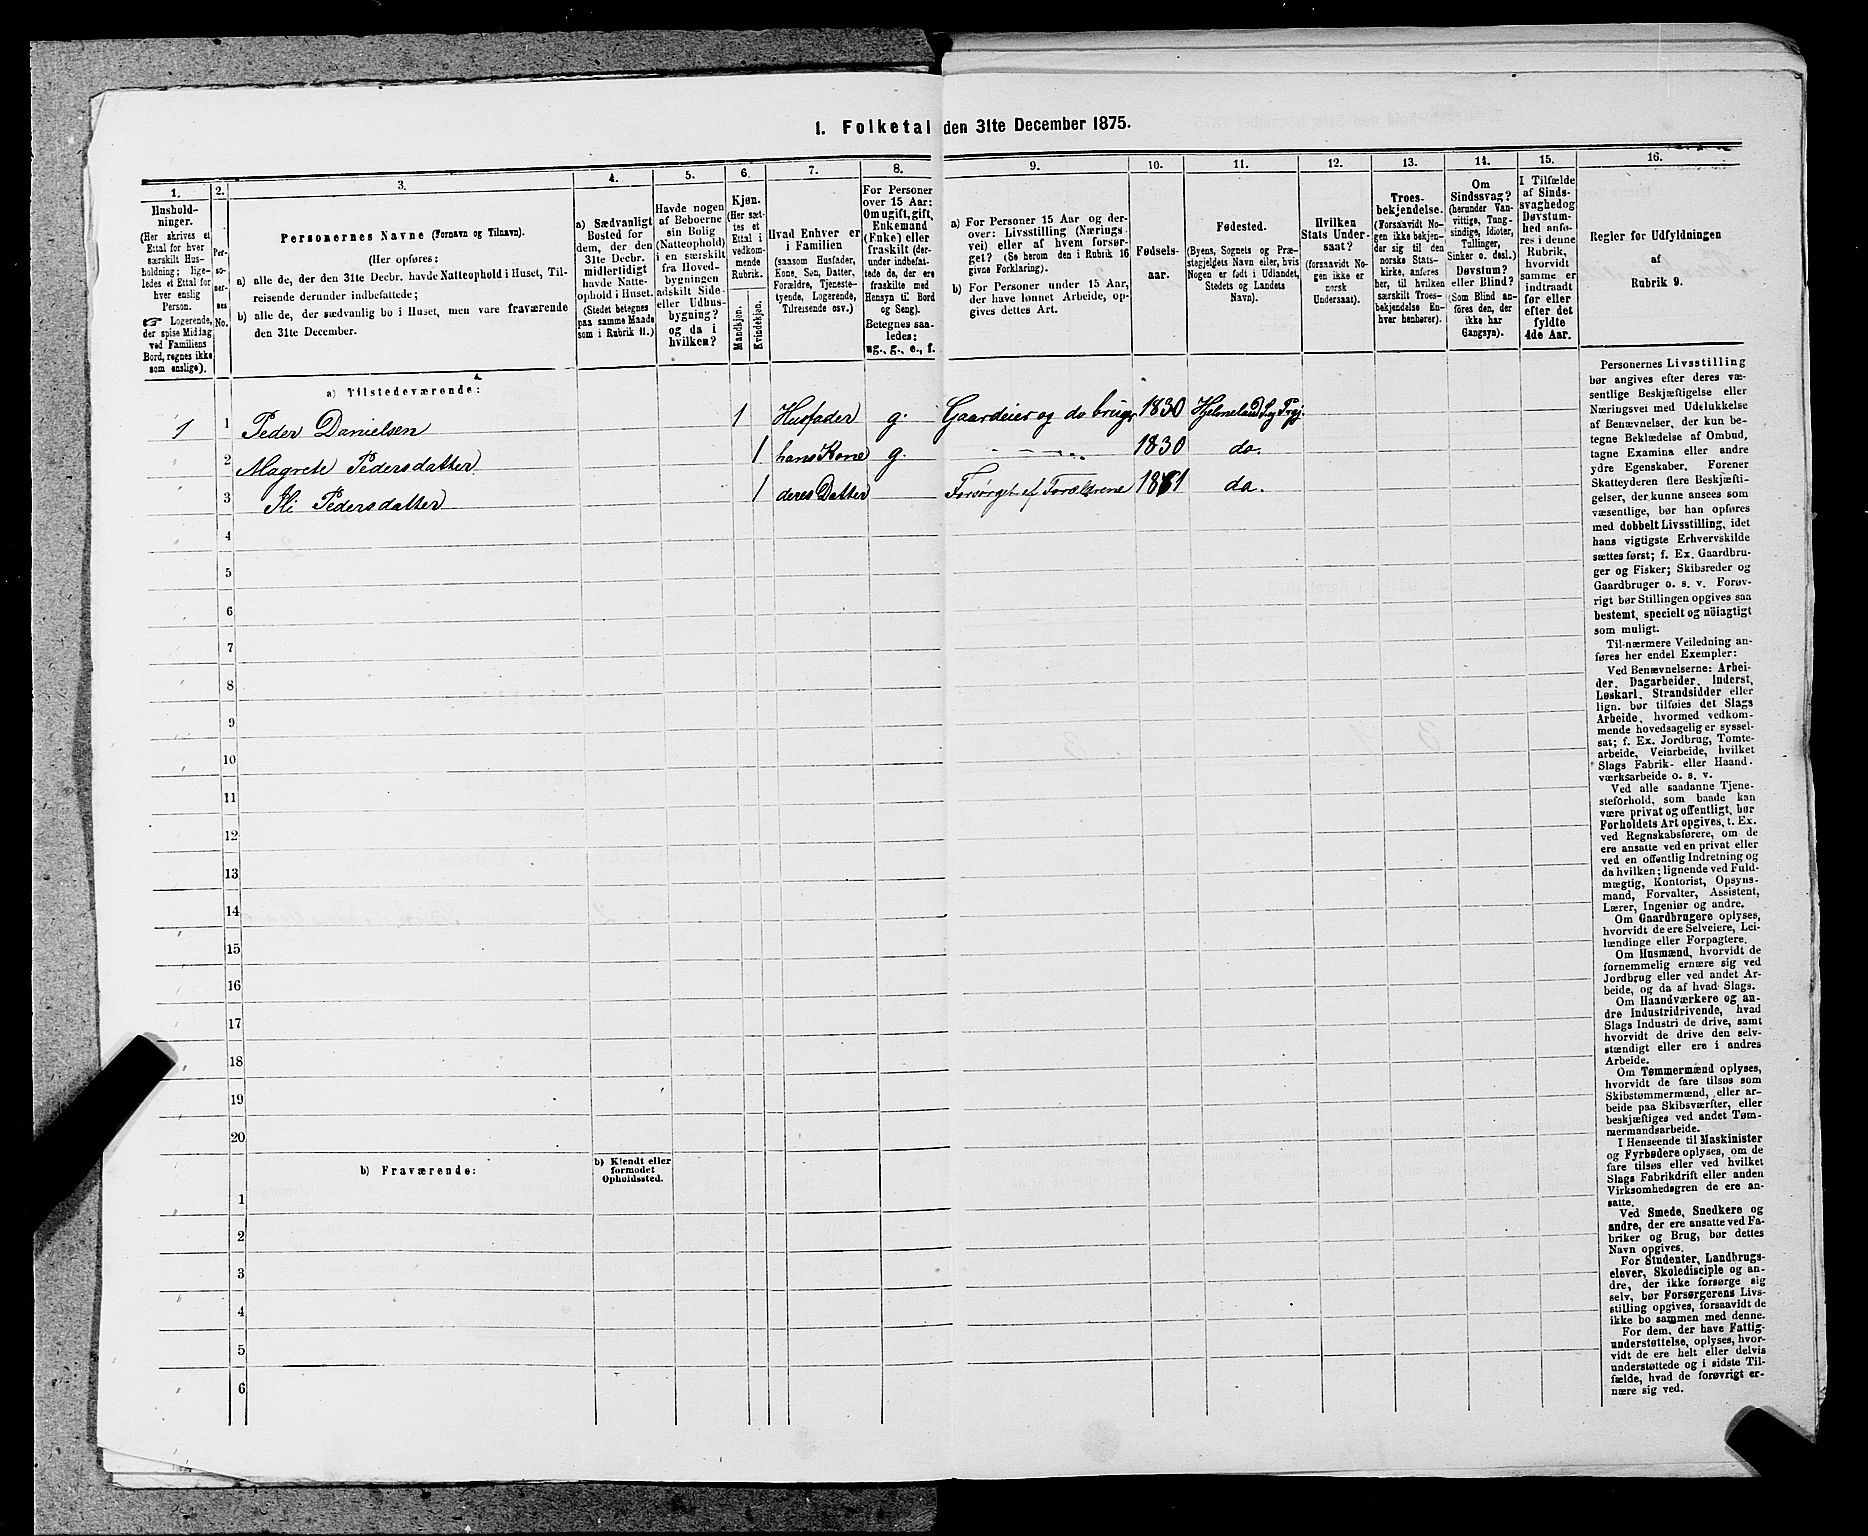 1. Folketal den 31te December 1875.
1.
2.
3.
4.
5.
6.
7.
8.
9.
10.
11.
12.
13.
14.
15.
16.
Hushold-
ninger.
(Her skrives et
Ettal for hver
særskilt Hus-
holdning; lige-
ledes et Ettal for
hver enslig
Person.
☞ Logerende,
der spise Middag
ved Familiens
Bord, regnes ikke
som enslige).
Per-
so-
ner-
nes
No.
Personernes Navne (Fornavn og Tilnavn).
(Her opføres:
a) alle de, der den 31te Decbr. havde Natteophold i Huset, Til-
reisende derunder indbefattede;
b) alle de, der sædvanlig bo i Huset, men vare fraværende
den 31te December.
a) Sædvanligt
Bosted for
dem, der den
31te Decbr.
midlertidigt
havde Natte-
ophold i Huset.
(Stedet betegnes
paa samme Maade
som i Rubrik 11.)
Havde nogen
af Beboerne
sin Bolig
(Natteophold)
i en særskilt
fra Hoved-
bygningen
adskilt Side-
eller Udhus-
bygning?
og da i
hvilken?
Kjøn.
(Her sæt-
tes et
Ettal i
vedkom-
mende
Rubrik.
Mandkjøn.
Kvindekjøn.
Hvad Enhver er
i Familien
(saasom Husfader,
Kone, Søn, Datter,
Forældre, Tjeneste-
tyende, Logerende,
Tilreisende osv.)
For Personer
over 15 Aar:
Om ugift, gift,
Enkemand
(Enke) eller
fraskilt (der-
under indbefat-
tede de, der ere
fraskilte med
Hensyn til Bord
og Seng).
Betegnes saa-
ledes:
ug., g., e., f.
a) For Personer 15 Aar og der-
over: Livsstilling (Nærings-
vei) eller af hvem forsør-
get? (Se herom den i Rubrik 16
givne Forklaring).
b) For Personer under 15 Aar,
der have lønnet Arbeide, op-
gives dettes Art.
Fødsels-
aar.
Fødested.
(Byens, Sognets og Præ-
stegjeldets Navn eller, hvis
Nogen er født i Udlandet,
Stedets og Landets
Navn).
Hvilken
Stats Under-
saat?
(forsaavidt No-
gen ikke er
norsk
Undersaat).
Troes-
bekjendelse.
(Forsaavidt No-
gen ikke bekjen-
der sig til den
norske Stats-
kirke, anføres
her, til hvilken
særskilt Troes-
bekjendelse En-
hver henhører).
Om
Sindssvag?
(herunder Van-
vittige, Tung-
sindige, Idioter,
Tullinger,
Sinker o. desl.)
Døvstum?
eller Blind?
(Som Blind an-
føres den, der
ikke har
Gangsyn).
I Tilfælde
af Sinds-
svaghed og
Døvstum-
hed anfø-
res i denne
Rubrik,
hvorvidt
samme er
indtraadt
før eller
efter det
fyldte
4de Aar.
Regler for Udfyldningen
af
Rubrik 9.
a) Tilstedeværende:
1 1 Peder Danielsen 1 Husfader g. Gaardeier og do bruger 1830
2 Magrete Pedersdatter 1 hans Kone g. 1830 do.
3 Pedersdatter 1 deres Datter Forsørget af Forældrene 1861 do.
4
5
6
7
8
9
10
11
12
13
14
15
16
17
18
19
20
b) Fraværende:
b) Kjendt eller
formodet
Opholdssted.
1
2
3
4
5
6
Personernes Livsstilling
bør angives efter deres væ-
sentlige Beskjæftigelse eller
Næringsvei med Udelukkelse
af Benævnelser, der kun be-
tegne Beklædelse af Ombud,
tagne Examina eller andre
ydre Egenskaber. Forener
Skatteyderen flere Beskjæfti-
gelser, der kunne ansees som
væsentlige, bør han opføres
med dobbelt Livsstilling, idet
hans vigtigste Erhvervskilde
sættes først; f. Ex. Gaardbru-
ger og Fisker; Skibsreder og
Gaardbruger o. s. v. Forøv-
rigt bør Stillingen opgives saa
bestemt, specielt og nöiagtigt
som muligt.
Til nærmere Veiledning an-
føres her endel Exempler:
Ved Benævnelserne: Arbei-
der, Dagarbeider, Inderst,
Løskarl, Strandsidder eller
lign. bør tilføies det Slags
Arbeide, hvormed vedkom-
mende hovedsagelig er syssel-
sat; f. Ex. Jordbrug, Tomte-
arbeide, Veiarbeide, hvilket
Slags Fabrik- eller Haand-
værksarbeide o. s. v.
Ved alle saadanne Tjene-
steforhold, som baade kan
være privat og offentligt, bør
Forholdets Art opgives, t. Ex.
ved Regnskabsførere, om de
ere ansatte ved en privat eller
ved en offentlig Indretning og
da hvilken; lignende ved Fuld-
mægtig, Kontorist, Opsyns-
mand, Forvalter, Assistent,
Lærer, Ingeniør og andre.
Om Gaardbrugere oplyses,
hvorvidt de ere Selveiere, Lei-
lændinge eller Forpagtere.
Om Husmænd, hvorvidt de
fornemmelig ernære sig ved
Jordbrug eller ved andet Ar-
beide, og da af hvad Slags.
Om Haandværkere og an-
dre Industridrivende, hvad
Slags Industri de drive, samt
hvorvidt de drive den selv-
stændigt eller ere i andres
Arbeide.
Om Tømmermænd oplyses,
hvorvidt de fare tilsøs som
Skibstømmermænd, eller ar-
beide paa Skibsværfter, eller
beskjæftiges ved andet Tøm-
mermandsarbeide.
I Henseende til Maskinister
og Fyrbødere oplyses, om de
fare tilsøs eller ved hvilket
Slags Fabrikdrift eller anden
Virksomhedsgren de ere an-
satte.
Ved Smede, Snedkere og
andre, der ere ansatte ved Fa-
briker og Brug, bør dettes
Navn opgives.
For Studenter, Landbrugs-
elever, Skoledisciple og an-
dre, der ikke forsørge sig
selv, bør Forsørgerens Livs-
stilling opgives, forsaavidt de
ikke bo sammen med denne.
For dem, der have Fattig-
understøttelse, oplyses, hvor-
vidt de ere helt eller delvis
understøttede og i sidste Til-
fælde, hvad de forøvrigt er-
nære sig ved.